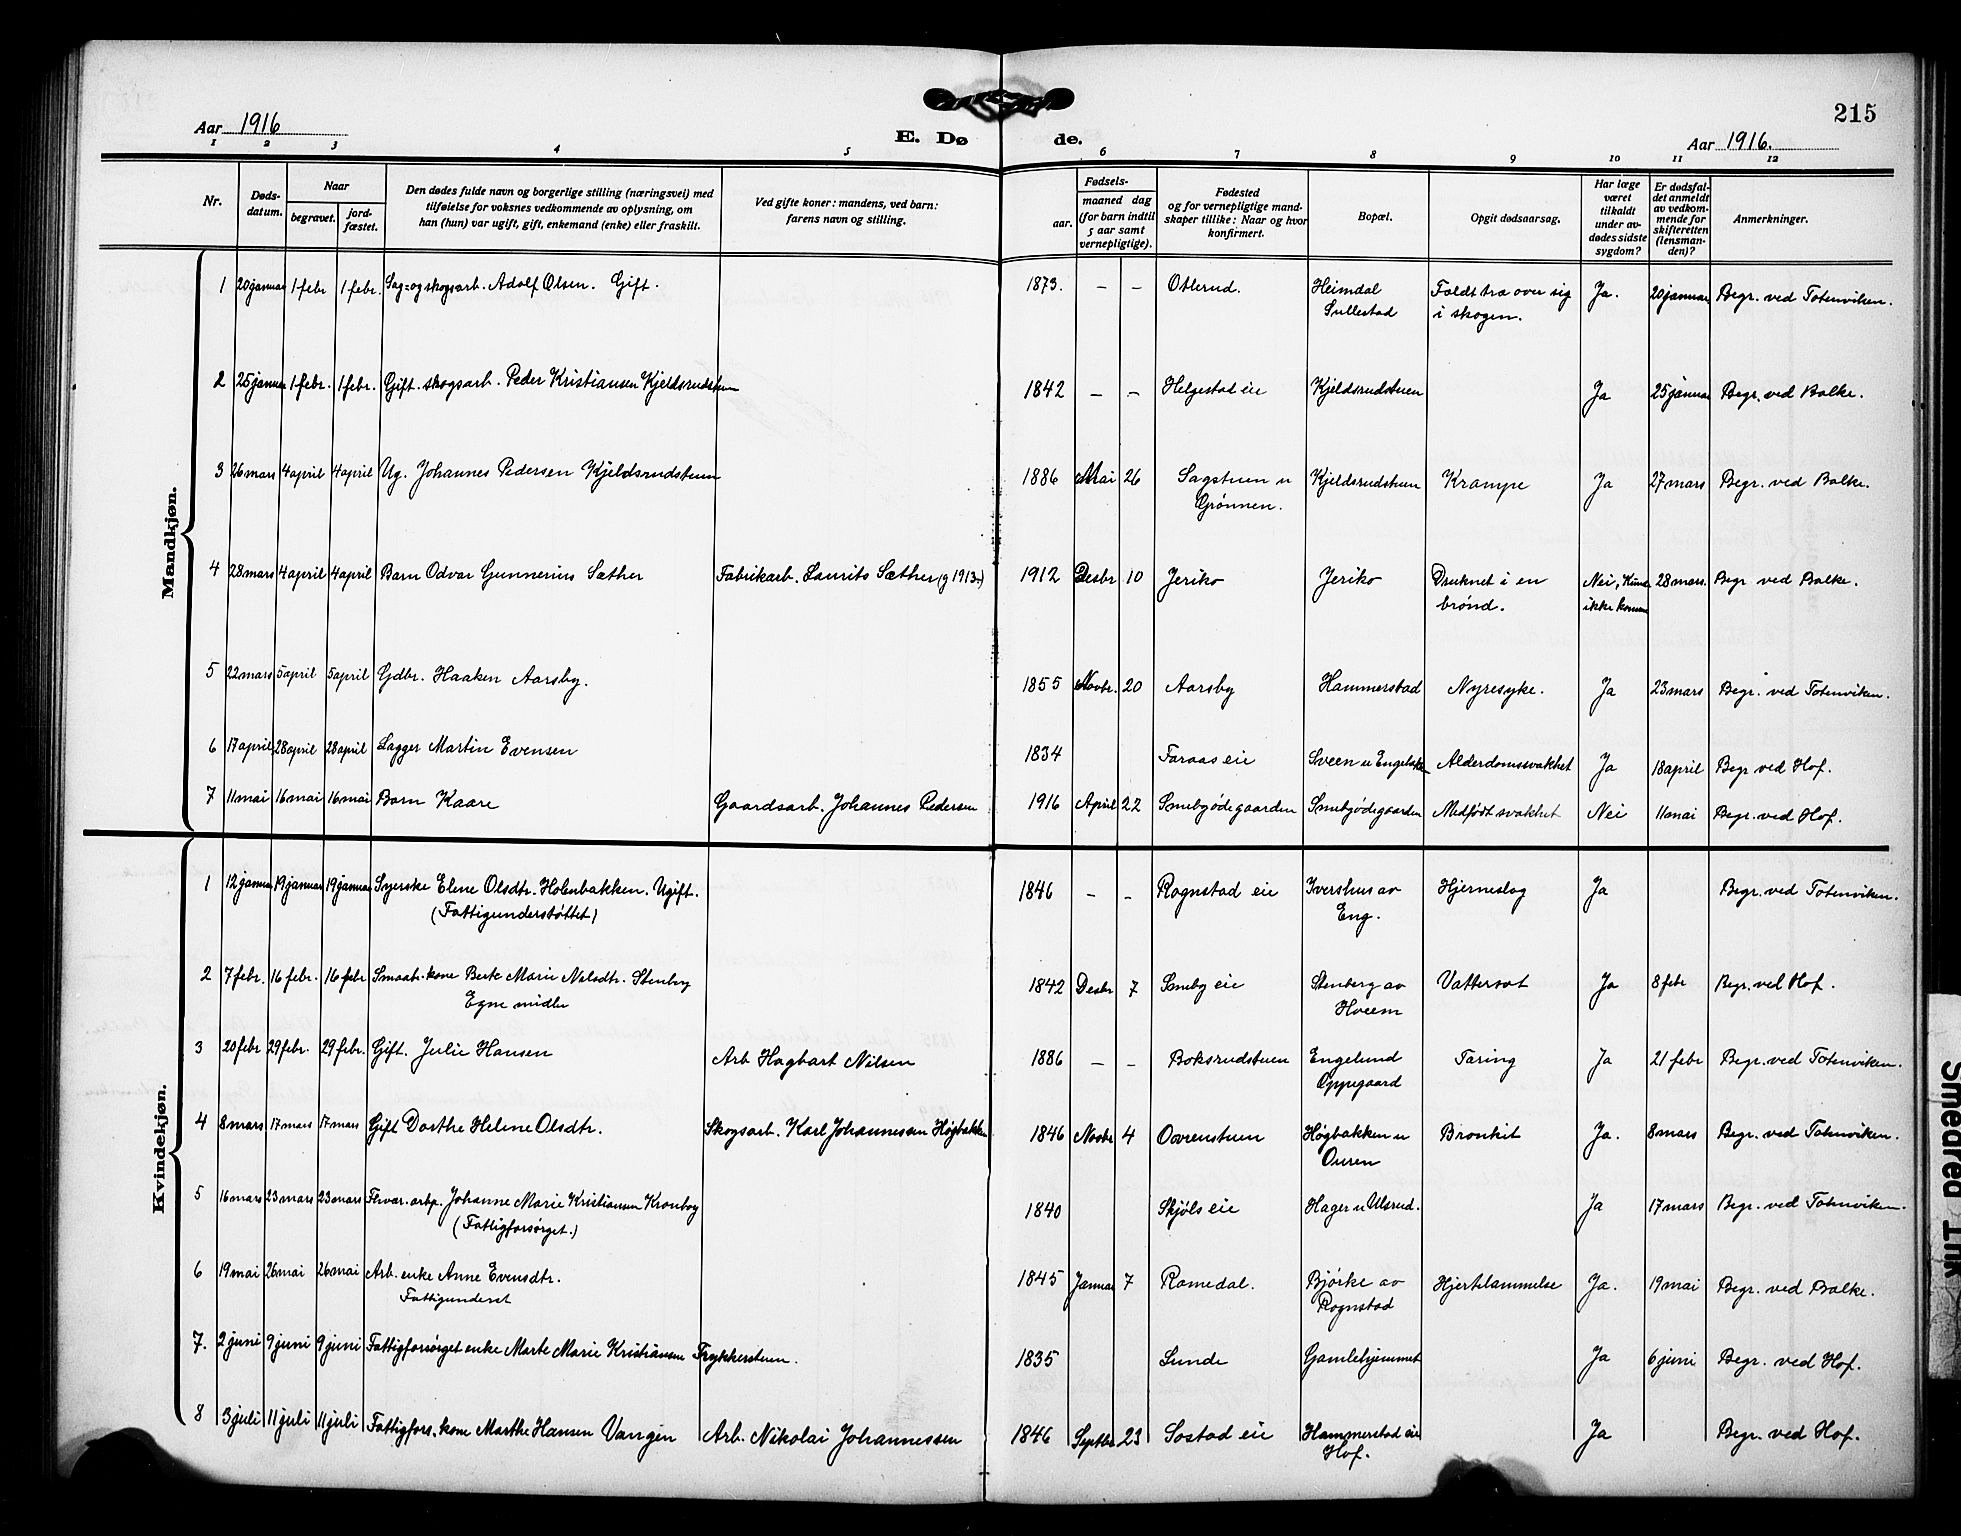 215
Aar 1916
E. Dø de.
Aar 1916.
1 2 3 4 5 6 7 8 9 10 11 12
Nr.
Døds-
datum.
Naar
begravet.
jord-
fæstet.
Den dødes fulde navn og borgerlige stilling (næringsvei) med
tilføielse for voksnes vedkommende av oplysning, om
han (hun) var ugift, gift, enkemand (enke) eller fraskilt.
Ved gifte koner: mandens, ved barn:
farens navn og stilling.
Fødsels-
aar.
maaned dag
(for barn indtil
5 aar samt
vernepligtige).
Fødested
og for vernepligtige mand-
skaper tillike: Naar og hvor
konfirmert.
Bopæl.
Opgit dødsaarsag.
Har læge
været
tilkaldt
under av-
dødes sidste
sygdom?
Er dødsfal-
det anmeldt
av vedkom-
mende for
skifteretten
(lensman-
den)?
Anmerkninger.
Mandkjøn.
1 20 januar 1 febr 1 febr. Sag= og skogsarb. Adolf Olsen. Gift. 1873. – – Otterud. Heimdal Foldt træ over sig Ja. 20 januar Begr. ved Totenviken.
Sullestad i skogen.
2 25 januar 1 febr. 1 febr. Gift. skogsarb. Peder Kristiansen Kjeldsrudstuen 1842 – – Helgestad eie Kjeldsrudstuen Ja 25 januar Begr. ved Balke.
3 26 mars 4 april 4 april Ug. Johannes Pedersen Kjeldsrudstuen 1886 Mai 26 Sagstuen u Kjeldsrudstuen Krampe Ja 27 mars Begr. ved Balke.
Grønnen.
4 28 mars 4 april 4 april Barn Odvar Gunnerius Sæther Fabrikarb. Laurits Sæther (g 1913) 1912 Desbr 10 Jeriko Jeriko Druknet i en Nei, Kunde 28 mars. Begr ved Balke.
brønd. ikke komme
5 22 mars 5 april 5 april Gdbr. Haaken Aarsby. 1855 Novbr. 20 Aarsby Hammerstad Nyresyke. Ja 23 mars Begr. ved Totenviken.
6 17 april 28 april 28 april Lægger Martin Evensen 1834 Faraas eie Sveen u Engelsk Alderdomssvakhet Ja 18 april Begr ved Hof.
7 11 mai 16 mai 16 mai Barn Kaare Gaardsarb. Johannes Pedersen 1916 April 22 Smebyødegaarden Smebyødegaarden Medfødt svakhet Nei 11 mai Begr. ved Hof.
Kvindekjøn.
1 12 januar 19 januar 19 januar Syerske Elene Olsdtr. Holenbakken. Ugift. 1846 – – Rognstad eie Ivershus av Hjerneslag Ja Begr. ved Totenviken.
(Fattigunderstøttet) Eng.
2 7 febr. 16 febr. 16 febr Smaabr. kone Berte Marie Nilsdtr. Stenberg 1842 Desbr 7 Smeby eie Stenberg av Vattersot Ja 8 febr Begr. ved Hof.
Egne midler Hveem
3 20 febr 29 febr. 29 febr. Gift. Julie Hansen Arb Hagbart Nilsen 1886 – – Boksrudstuen Engelund Tæring Ja 21 febr Begr. ved Totenviken.
Oppegaard
4 8 mars 17 mars 17 mars Gift Dorthe Helene Olsdtr. Skogsarb. Karl Johannessen Høgbakken 1846 Novbr 4 Ovrenstuen Høgbakken u Bronkit Ja. 8 mars Begr. ved Totenviken.
Ouren
5 16 mars 23 mars 23 mars Johanne Marie Kristiansen Kronborg 1840 Skjøls eie Hager u Ulsrud. Ja 17 mars Begr. ved Totenviken.
(Fattigforsørget.)
6 19 mai 26 mai 26 mai Arb. enke Anne Evensdtr. 1845 Januar 7 Romedal. Bjørke av Hjertelammelse Ja. 19 mai Begr. ved Balke.
Fattigunderst Rognstad
7. 2 juni 9 juni 9 juni Fattigforsørget enke Marte Marie Kristiansen Trykkerstuen. 1835 Lunde Gamlehjemmet Ja 6 juni Begr. ved Hof.
8 3 juli 11 juli 11 juli Fattigfors. kone Marthe Hansen Vangen Arb. Nikolai Johannessen 1846 Septbr 23 Sostad eie Hammerstad eie Ja Begr. ved Hof.
Hof.
Smedfed